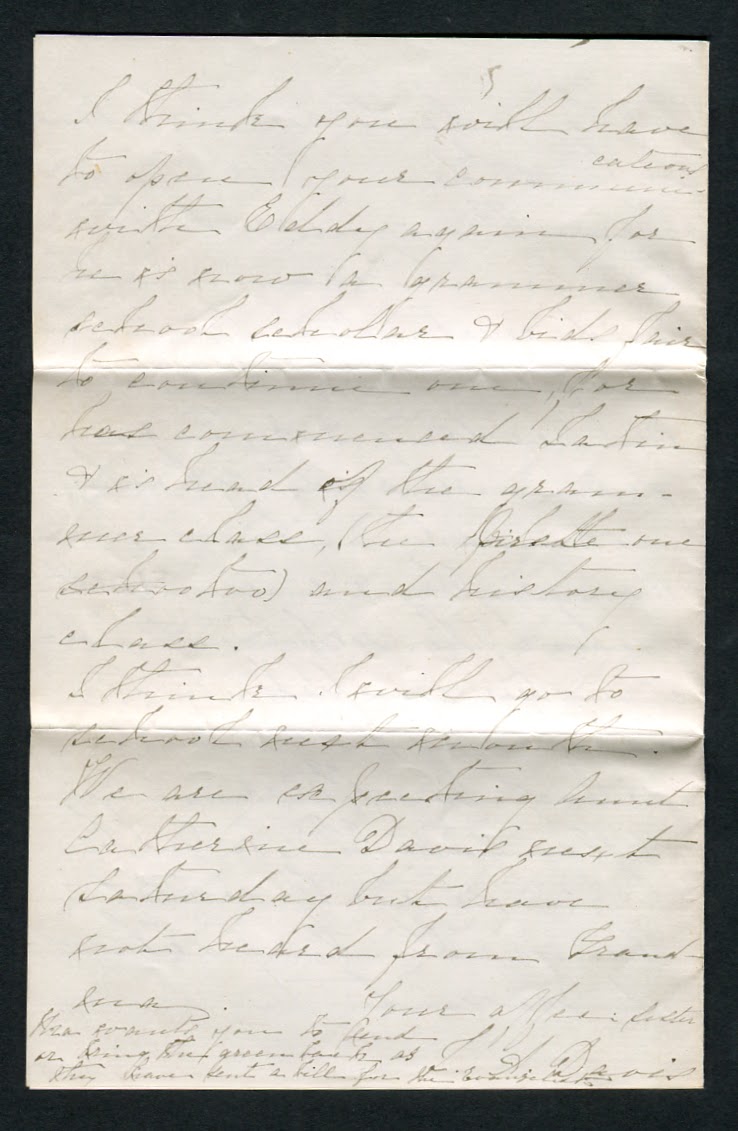 5
I think you will have
to open your communi-
cations
with Eddy again for
he is now a grammer
school schollar & bids fair
to continue one, for
has commenced Latin
& is head of the gram-
mer class, (the one
school too) and history
class.
I think I will go to
school next month.
We are expecting Aunt
Catherine Davis next
Saturday but have
not heard from Grand-
ma. Your affec. sister
Davis
Ma wants you to send
or bring the greenback as
they have sent a bill for the Evangelist